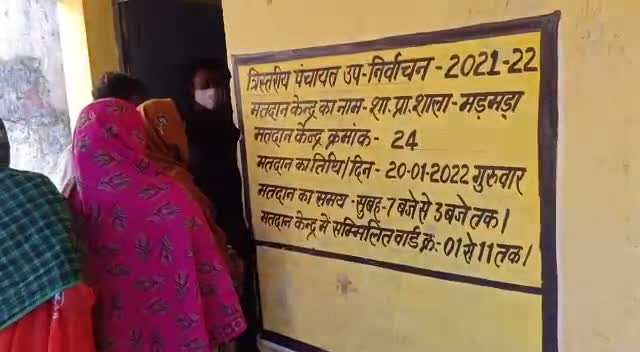 त्रिस्तरीय पंचायत उप-निर्वाचन - 2021-22
मतदान केन्द्र का नाम - शा. प्रा. शाला - मड़मड़ा
मतदान केन्द्र क्रमांक - 24
मतदान का तिथि/दिन - 20-01-2022 गुरुवार
मतदान का समय - सुबह - 7 बजे से 3 बजे तक।
मतदान केन्द्र में सम्मिलित वार्ड क्र. 01 से 11 तक।